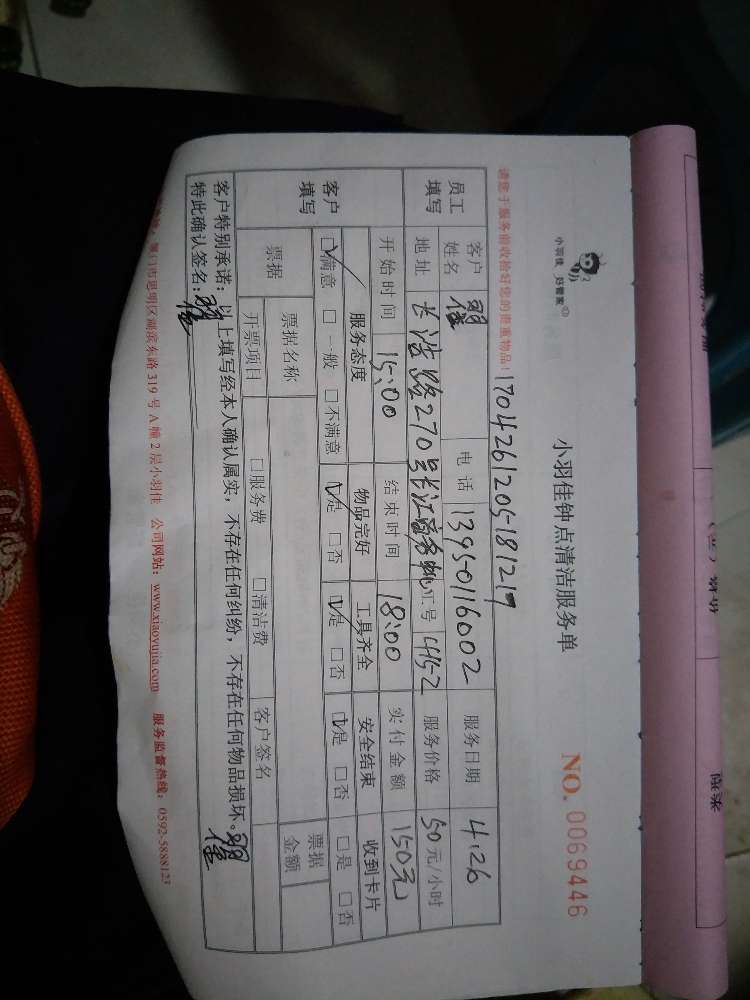 小羽佳 好管家
小羽佳钟点清洁服务单
NO. 0069446
请您于服务前收检好您的贵重物品！
1704261205181217
员工填写 客户姓名 电话 13950116002 服务日期 4.26
地址 长浩路270号长江 工号 445-2 服务价格 50元/小时
开始时间 15:00 结束时间 18:00 实付金额 150元
客户填写 服务态度 物品完好 工具齐全 安全结束 收到卡片
☑满意 □一般 □不满意 ☑是 □否 ☑是 □否 ☑是 □否 □是 □否
票据 票据名称 票据金额
开票项目 □服务费 □清洁费 客户签名
客户特别承诺：以上填写经本人确认属实，不存在任何纠纷，不存在任何物品损坏。
特此确认签名：
厦门市思明区湖滨东路 319 号 A 幢 2 层小羽佳 公司网站：www.xiaoyujia.com 服务监督热线：0592-5888123